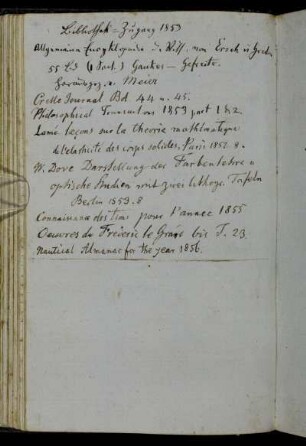 Bibliothek-Zugang 1853
Allgemeine Encyklopädie d. Wiss. von Ersch u. Gruber
55 Bd (1 Sect.) Gaukes – Gefreite.
Herausgeg. v. Meier
Crelle Journal Bd 44 u. 45.
Philosophical Transactions 1853 part 1 & 2.
Lamé leçons sur la theorie mathématique
de l'elasticité des corps solides. Paris 1852. 8.
W. Dove Darstellung der Farbenlehre u
optische Studien mit zwei lithogr. Tafeln
Berlin 1853. 8
Connaissance des Tems pour l'année 1855
Oeuvres de Fréderic le Grand bis T. 23
Nautical Almanac for the year 1856.